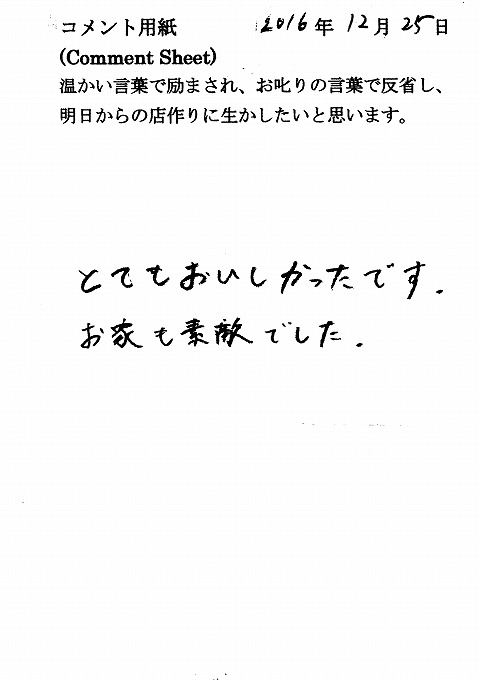 コメント用紙 2016年12月25日
(Comment Sheet)
温かい言葉で励まされ、お叱りの言葉で反省し、
明日からの店作りに生かしたいと思います。
とてもおいしかったです.
お家も素敵でした.